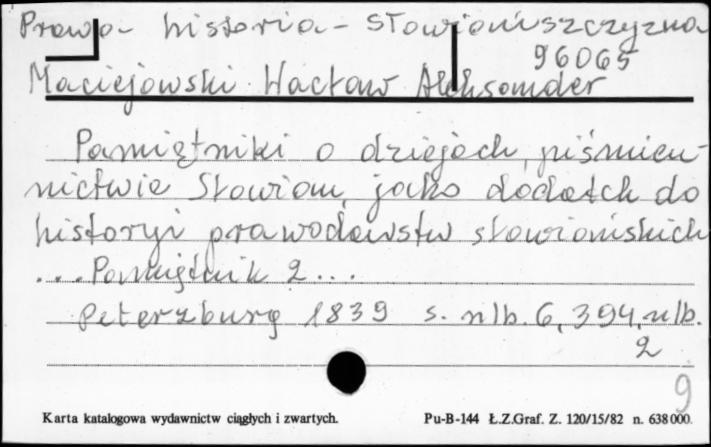 Prawo - historia - Słowiańszczyzna
96065
Maciejowski Wacław Aleksander
Pamiętniki o dziejach, piśmien-
nictwie Słowian, jako dodatek do
historyi prawodawstw słowiańskich
... Pamiętnik 2 ...
Peterzburg 1839 s. nlb. 6, 394, nlb.
2
9
Karta katalogowa wydawnictw ciągłych i zwartych. Pu-B-144 Ł.Z.Graf. Z. 120/15/82 n. 638000.